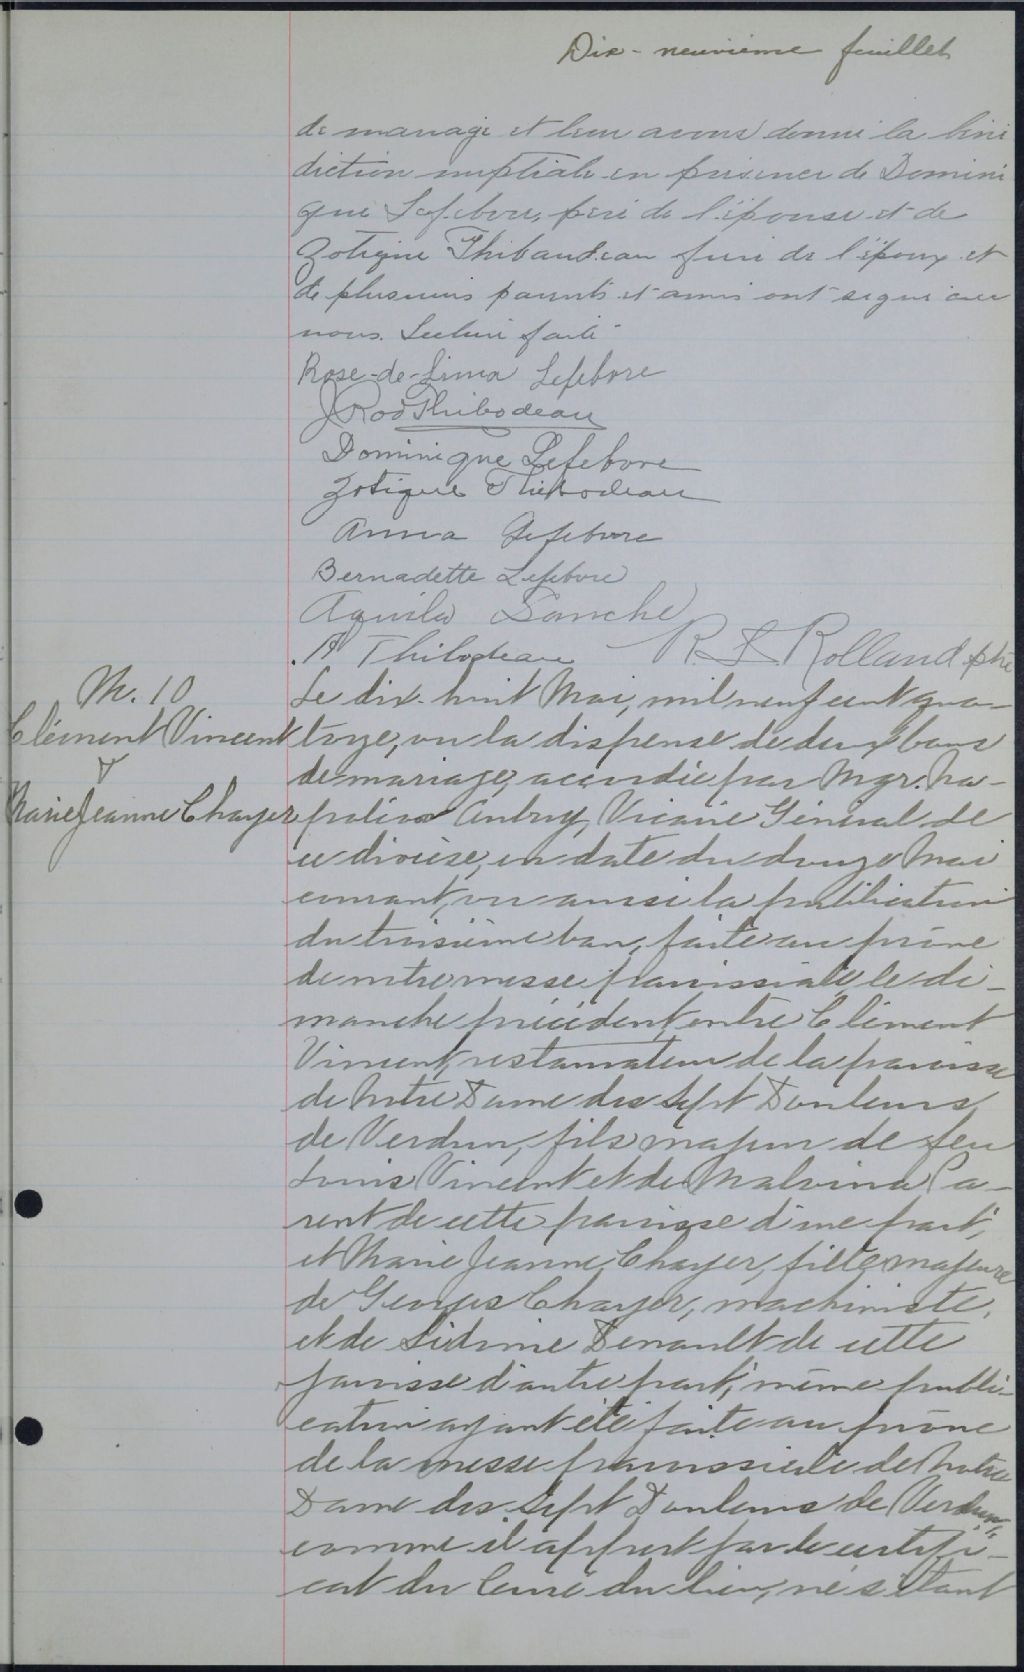 Dix-neuvième feuillet
de mariage et leur avons donné la béné
diction nuptiale en présence de Domini
que Lefebvre, père de l'épouse et de
Zotique Thibaudeau frère de l'époux et
de plusieurs parents et amis ont signé avec
nous. Lecture faite
Rose-de-Lima Lefebvre
J Rod Thibodeau
Dominique Lefebvre
Zotique Thibodeau
Anna Lefebvre
Bernadette Lefebvre
Aquila Sanche
A Thibodeau R. L. Rolland ptre
M. 10
Clément Vincent
&
Marie Jeanne Chayer
Le dix-huit Mai, mil neuf cent qua-
torze, vu la dispense de deux bans
de mariage, accordée par Mgr. Na-
poléon Aubry, Vicaire Général de
ce diocèse, en date du douze Mai
courant, vu aussi la publication
du troisième ban, faite au prône
de notre messe paroissiale le di-
manche précédent, entre Clément
Vincent, restaurateur de la paroisse
de Notre Dame des Sept Douleurs
de Verdun, fils majeur de feu
Louis Vincent et de Malvina Pa-
rent de cette paroisse d'une part;
et Marie Jeanne Chayer, fille majeure
de Georges Chayer, machiniste,
et de Denault de cette
paroisse d'autre part; même publi-
cation ayant été faite au prône
de la messe paroissiale de Notre
Dame des Sept Douleurs de Verdun,
comme il appert par le certifi-
cat du Curé du lieu, ne s'étant